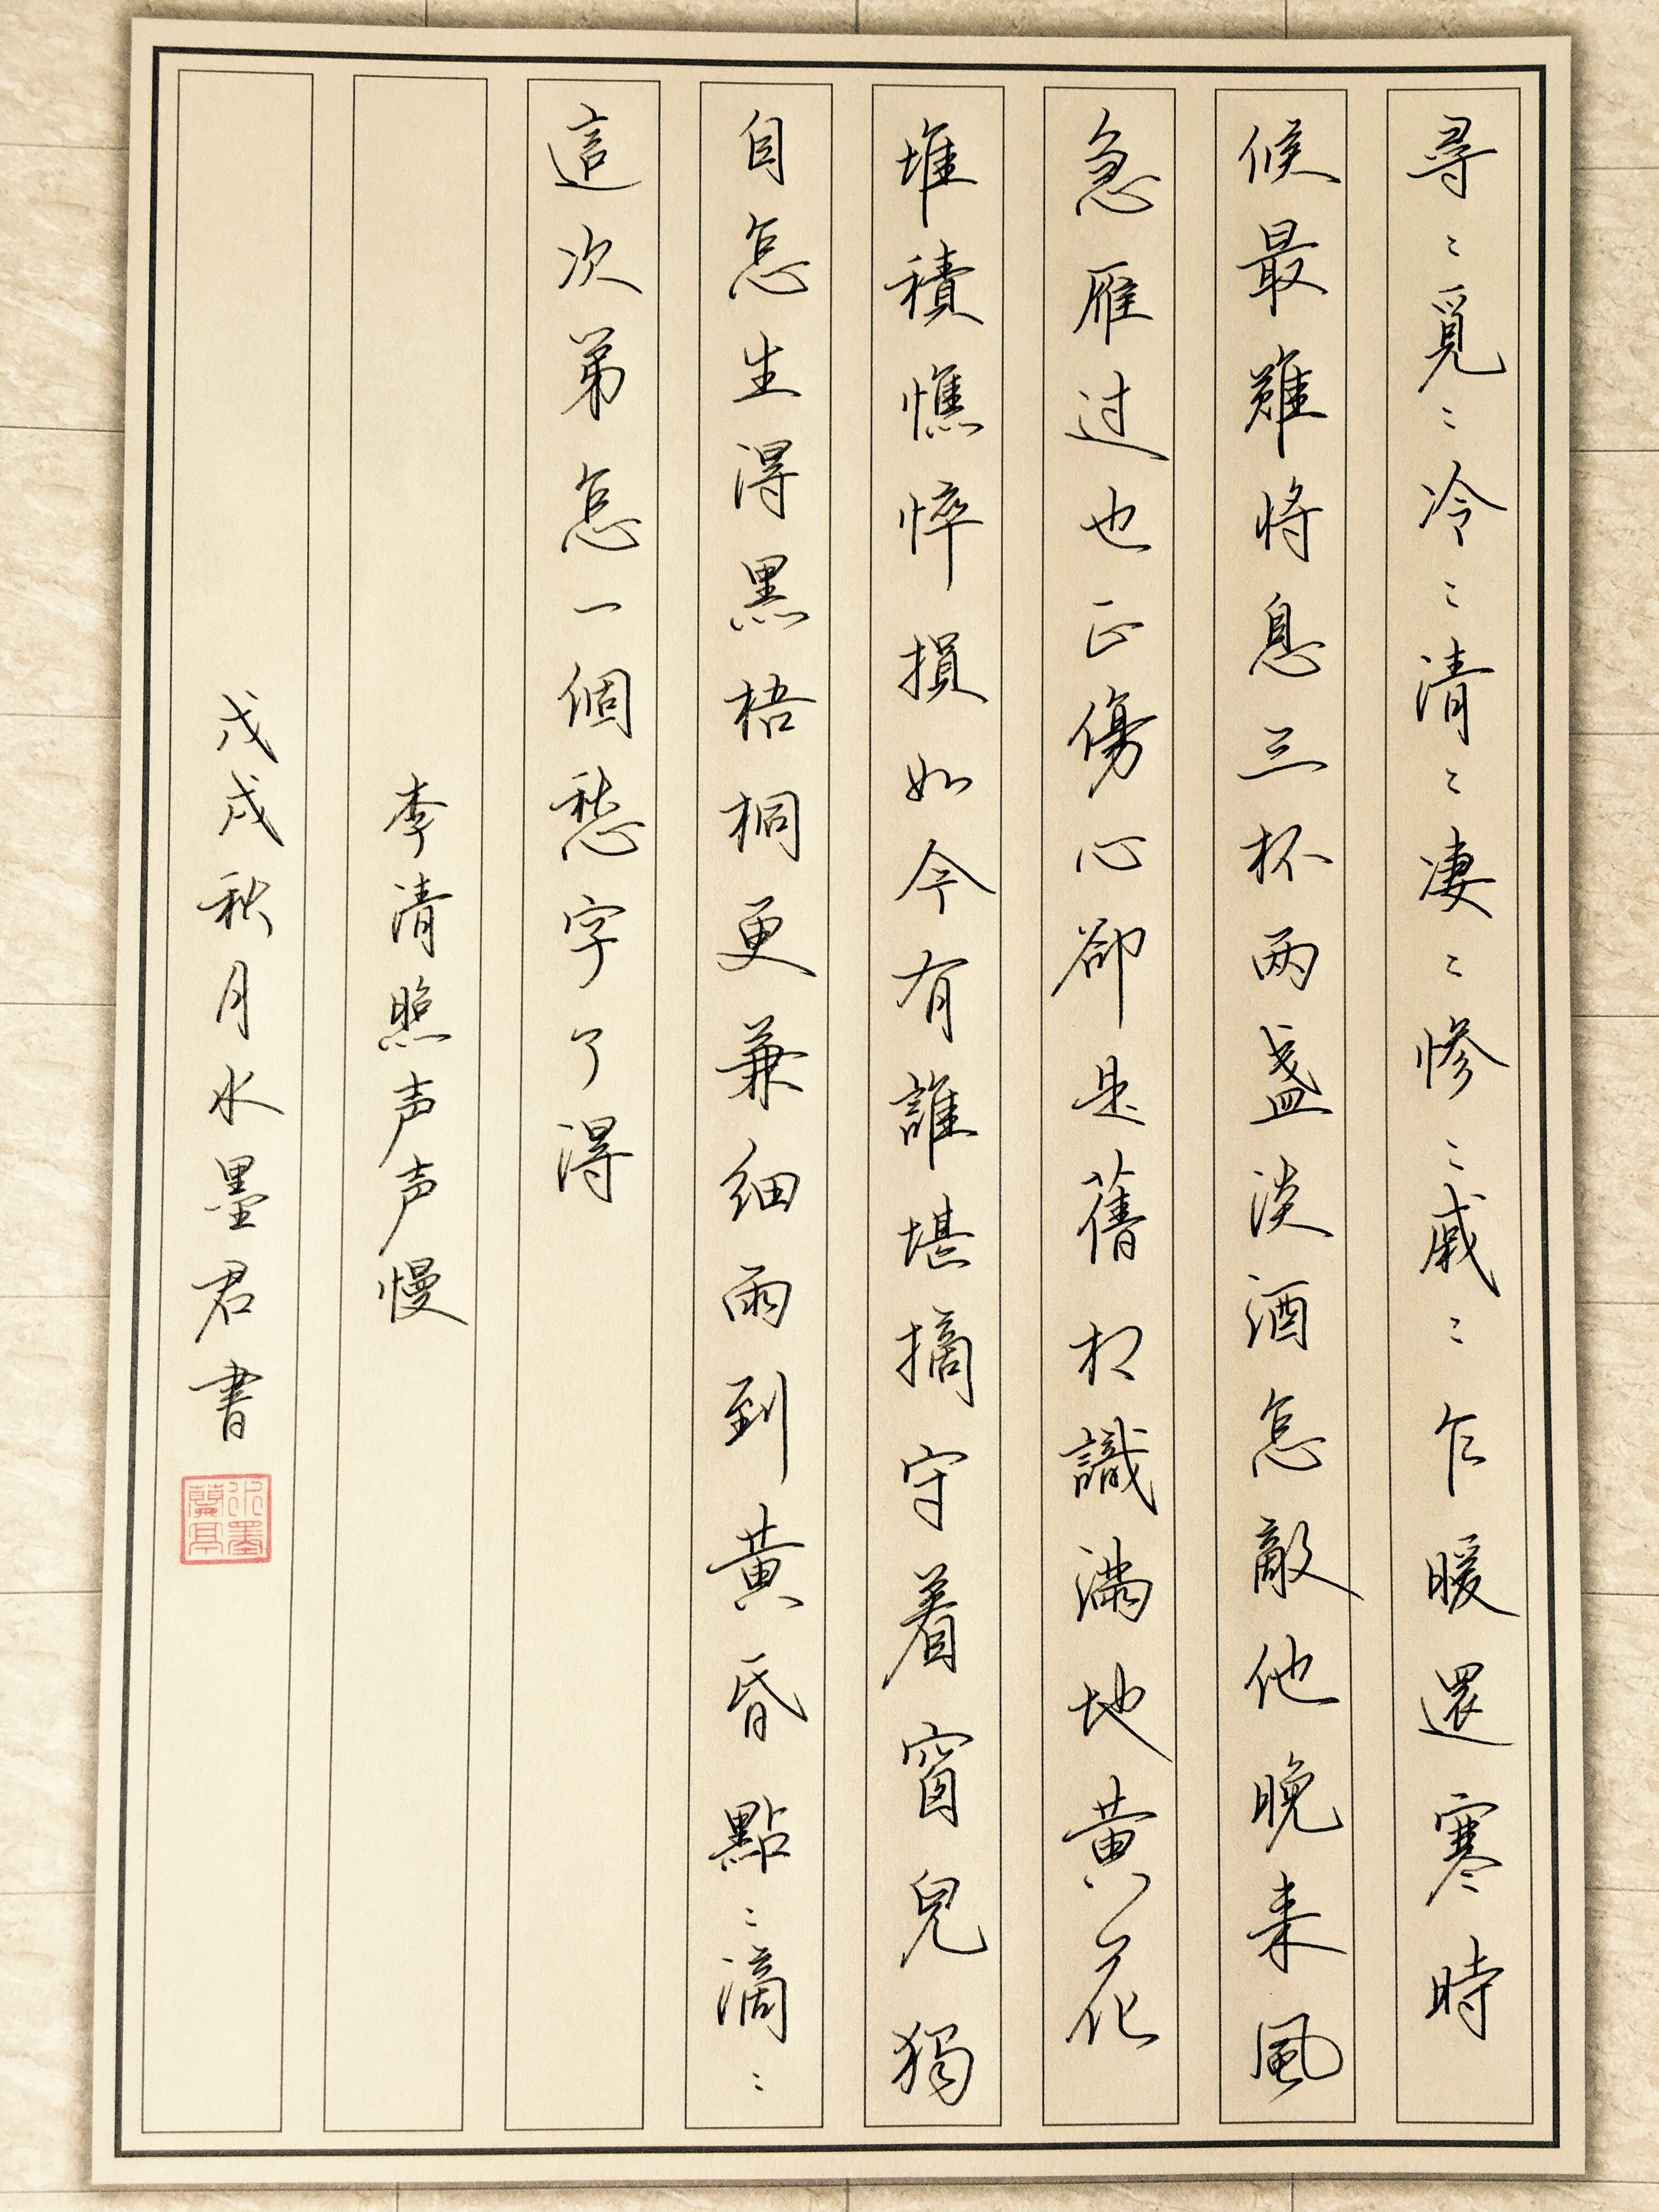 尋〻覓〻冷〻清〻凄〻惨〻戚〻乍暖還寒時
候最難将息三杯两盏淡酒怎敵他晚来風
急雁过也正傷心卻是舊相識满地黄花
堆積憔悴損如今有誰堪摘守着窗兒獨
自怎生得黑梧桐更兼细雨到黄昏點〻滴〻
這次弟怎一個愁字了得
李清照声声慢
戊戌秋月水墨君書
水墨蘭亭